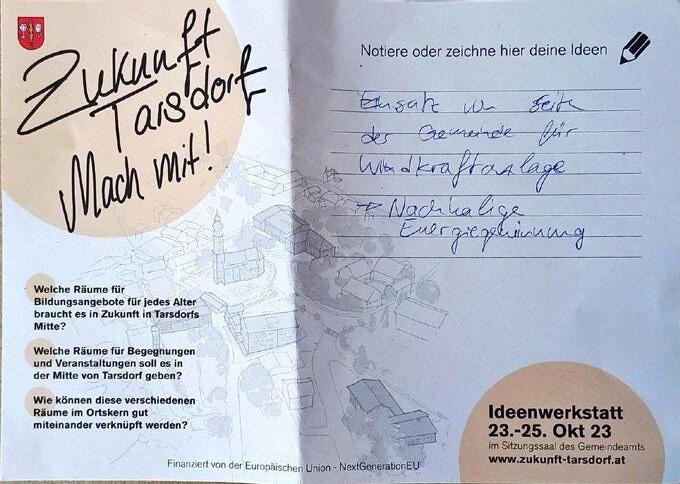 Zukunft
Tarsdorf
Mach mit!
Welche Räume für
Bildungsangebote für jedes Alter
braucht es in Zukunft in Tarsdorfs
Mitte?
Welche Räume für Begegnungen
und Veranstaltungen soll es in
der Mitte von Tarsdorf geben?
Wie können diese verschiedenen
Räume im Ortskern gut
miteinander verknüpft werden?
Notiere oder zeichne hier deine Ideen
Einsatz von Seiten
der Gemeinde für
Windkraftanlage
Nachhalige
Energiegewinnung
Ideenwerkstatt
23.-25. Okt 23
im Sitzungssaal des Gemeindeamts
www.zukunft-tarsdorf.at
Finanziert von der Europäischen Union - NextGenerationEU